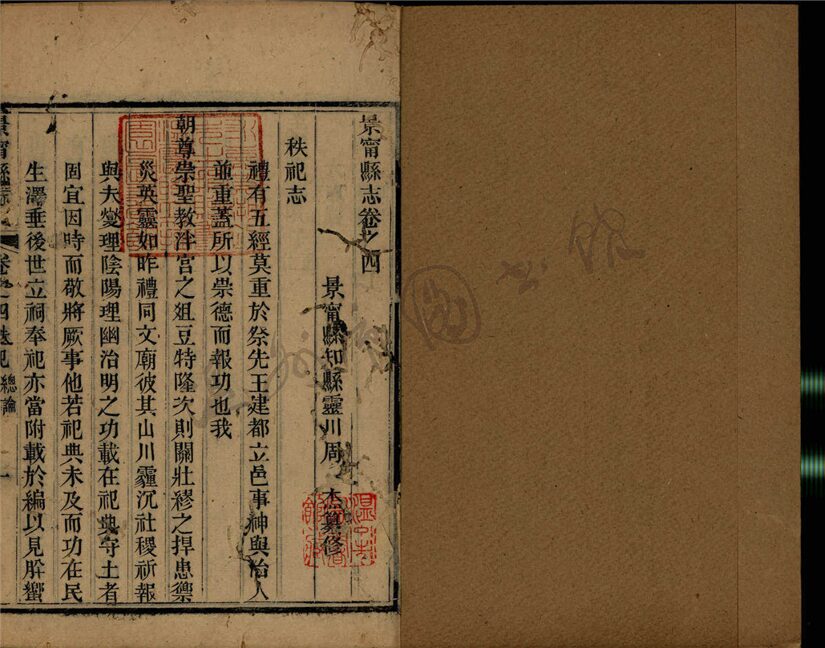 景甯縣志卷之四
景甯縣知縣靈川周杰纂修
秩祀志
禮有五經莫重於祭先王建都立邑事神與治人
並重蓋所以崇德而報功也我
朝尊崇聖教泮宮之俎豆特隆次則關壯繆之捍患禦
災英靈如昨禮同文廟彼其山川霾沉社稷祈報
與夫燮理陰陽理幽治明之功載在祀典守土者
固宜因時而敬將厥事他若祀典未及而功在民
生澤垂後世立祠奉祀亦當附載於編以見肸蠁
景甯縣志
卷之四秩祀總論
一